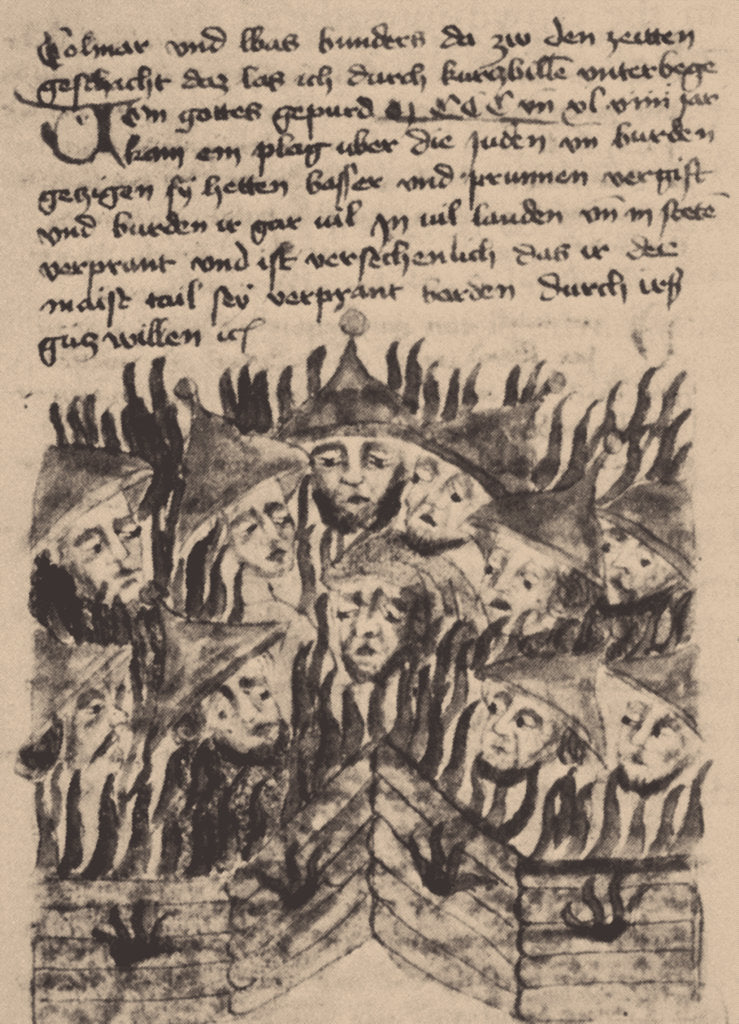 Colmar vnd was wunders da zw den zeitten
geschicht daz las ich durch kurczwille vnterwege
Von gottes gepurd M CCC vn xl viiij jar
kam ein plag uber die juden vn wurden
gezigen sy hetten wasser vnd prunnen vergift
vnd wurden ir gar uil jn uil landen vn in stetē
verprant vnd ist versechenlich das ir der
maist tail sey verprant worden durch irs
gutz willen